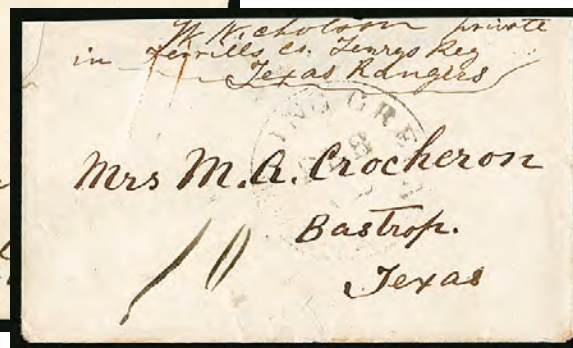 W Nicholson private
in Ferrills Co. Terrys Reg
Texas Rangers
ING GRE
Mrs M. A. Crocheron
Bastrop.
Texas
10